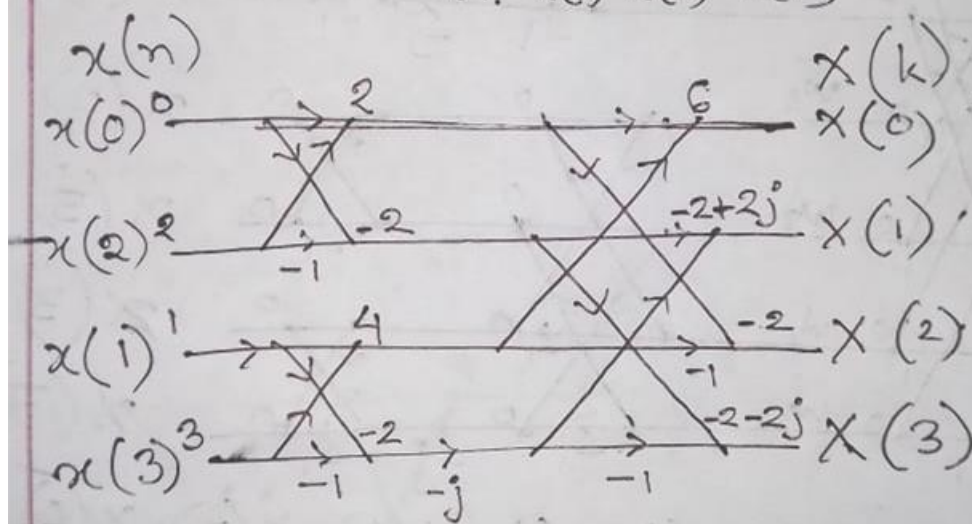 x(n) X(k)
x(0) 0 2 6 X(0)
x(2) 2 -1 -2 -2+2j X(1)
x(1) 1 4 -1 -2 X(2)
x(3) 3 -1 -2 -j -1 -2-2j X(3)